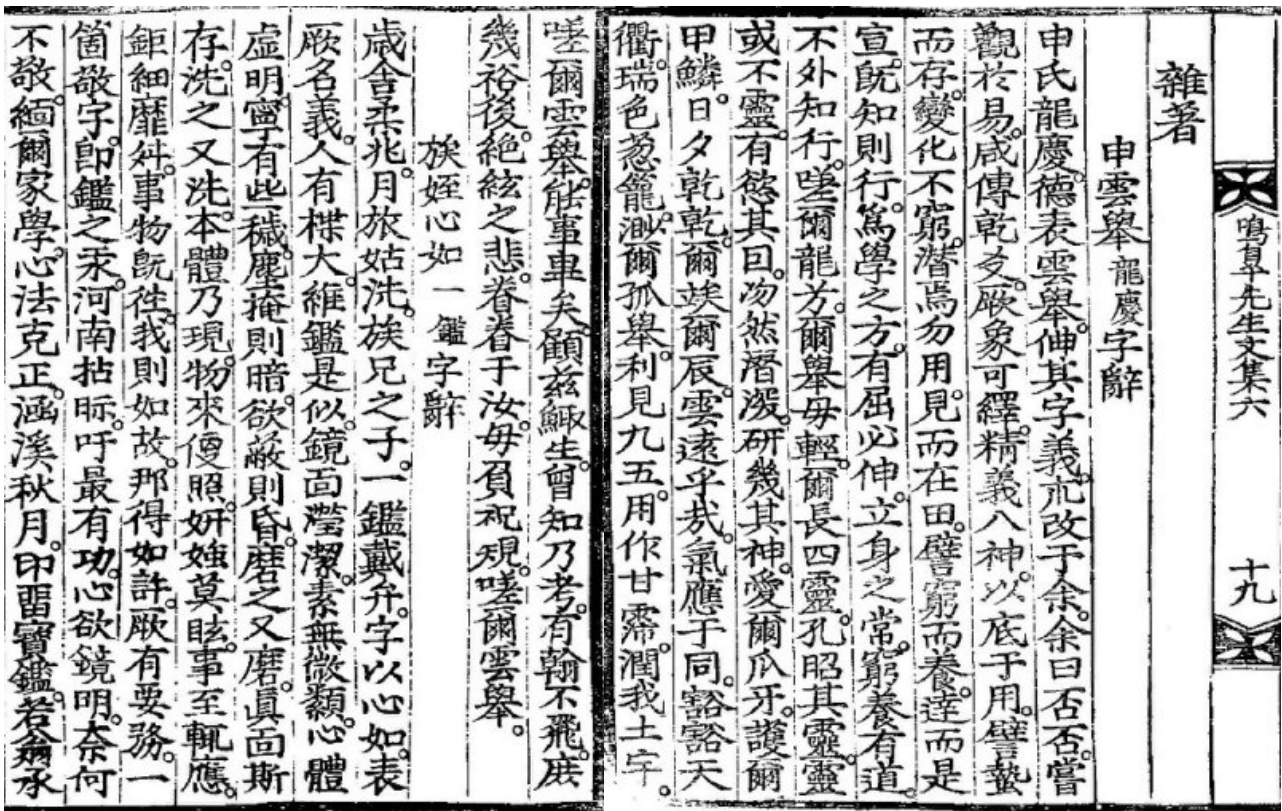 鳴皐先生文集六 十九
雜著
申雲擧龍慶字辭
申氏龍慶。德表雲擧。伸其字義。朮改于余。余曰否否。嘗
觀於易。咸傳乾爻。厥象可繹。精義八神。以底于用。譬蟄
而存。變化不窮。潛焉勿用。見而在田。譬窮而養。達而是
宣。旣知則行。篤學之方。有屈必伸。立身之常。窮養有道。
不外知行。嗟爾龍方。爾擧毋輕。爾長四靈。孔昭其靈。靈
或不靈。有慾其回。沕然潛深。研幾其神。愛爾瓜牙。護爾
甲鱗。日夕乾乾。爾竢爾辰。雲遠乎㢤。氣應于同。豁豁天
衢。瑞色葱籠。爾孤擧。利見九五。用作甘霈。潤我土宇。
嗟爾雲擧。能事畢矣。顧玆鯫生。曾知乃考。有翰不飛。庶
幾裕後。絶絃之悲。眷眷于汝。毋負祝規。嗟爾雲擧。
族姪心如一鑑字辭
歲舍柔兆。月旅姑洗。族兄之子。一鑑戴弁。字以心如。表
厥名義。人有樸大。維鑑是似。鏡面瀅潔。素無微纇。心體
虛明。寧有些穢。塵掩則暗。欲蔽則昏。磨之又磨。眞面斯
存。洗之又洗。本體乃現。物來便照。妍媸莫眩。事至輒應。
鉅細靡舛。事物旣徃。我則如故。那得如許。厥有要務。一
箇敬字。卽鑑之汞。河南拈眎。吁最有功。心欲鏡明。奈何
不敬。緬爾家學。心法克正。涵溪秋月。印畱寶鑑。若翁承